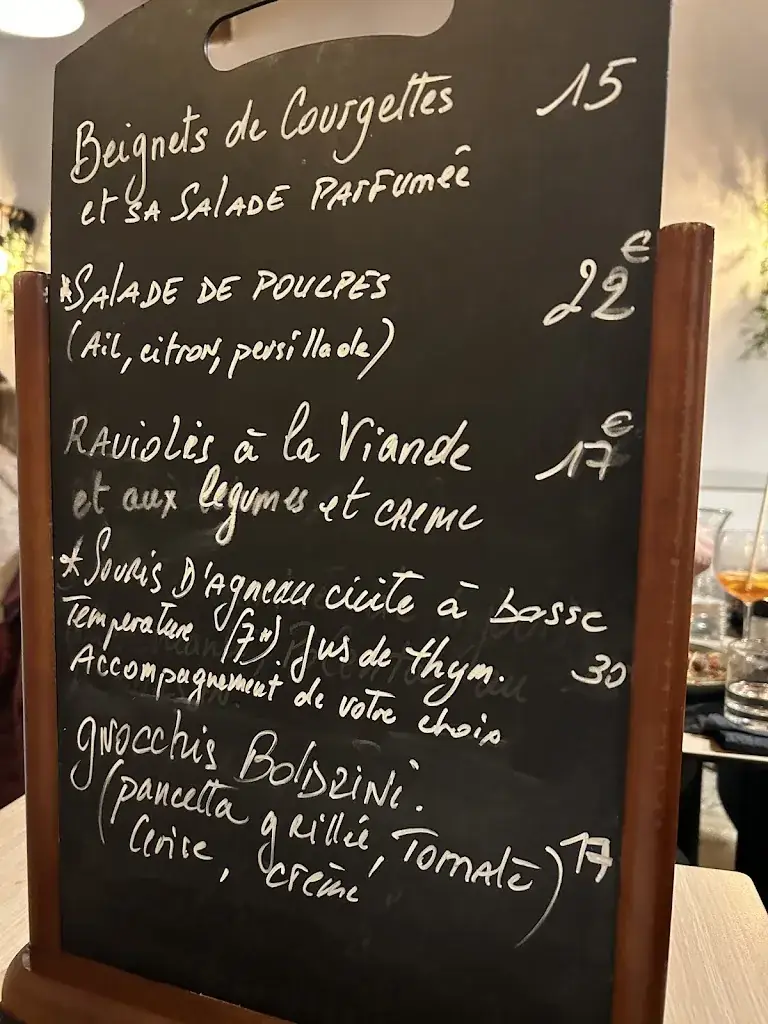 Beignets de Courgettes 15
et SA SALADE PARFUMéE
*SALADE DE POULPES 22€
(Ail, citron, persillade)
RAVIOLIS à la Viande 17€
et aux légumes et CREME
*SOURIS D'Agneau cuite à basse
Température (7H). Jus de thym.
Accompagnement de votre choix 30
gnocchis BOLDRINI.
(pancetta grillée, TOMATE
Cerise, crème) 17